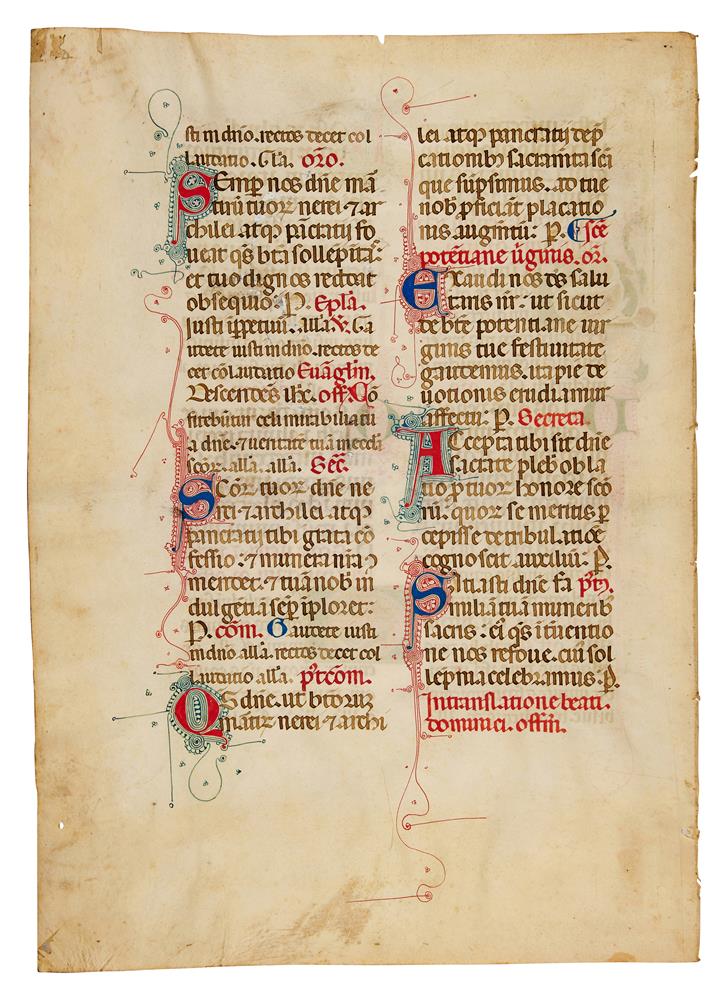 sti in dño. rectos decet col
laudatio. Gľa. oro.
Semp nos dñe mã
tirũ tuoꝝ nerei ⁊ ar
chilei atqȝ pãcratij fo
ueat q̃s bt̃a sollẽpitas:
et tuo dignos reddat
obsequio: P. Epľa.
Iusti ĩ ppetuũ. alľa. ℣. Ga
udete iusti in dño. rectos de
cet cõlaudatio Euãgľm.
Descendẽs ihc̃. off. Cõ
fitebũtur celi mirabilia tu
a dñe. ⁊ ueritatẽ tuã in eccľa
sc̃oꝝ. alľa. alľa. Sec̃.
Sc̃oꝝ tuoꝝ dñe ne
rei ⁊ archilei atqȝ
pancratij tibi grata cõ
fessio: ⁊ munera nr̃a cõ
mendet. ⁊ tuã nob̃ in
dulgẽtiã semp̃ iploret:
P. cõm. Gaudete iusti
in dño alľa. rectos decet col
laudatio alľa. p̃tcõm.
Q̃s dñe. ut bt̃oruȝ
martir̃ nerei ⁊ archi
lei atqȝ pancratij dep̃
cationibȝ sacram̃ta sc̃i
que sũpsimus. ad tue
nob̃ p̃ficiãt placatio
nis augm̃tũ: P. Sc̃e
potẽtiane ũginis. or̃.
Exaudi nos d̃s salu
taris nr̃. ut sicut
de bt̃e potentiane uir
ginis tue festiuitate
gaudemus. ita pie de
uotionis erudiamur
affectu: P. Secreta.
Accepta tibi sit dñe
sacrate pleb̃ obla
tio p̃ tuoꝝ honore sc̃o
rũ: quoꝝ se meritis p̃
cepisse de tribulatõe
cognoscit auxiliũ: P.
Satiasti dñe fa p̃tcõ.
miliã tuã munerib̃
sacris: ei q̃s ĩtuentio
ne nos refoue. cui sol
lepnia celebramus. P.
In translatione beati.
dominici. offm̃.